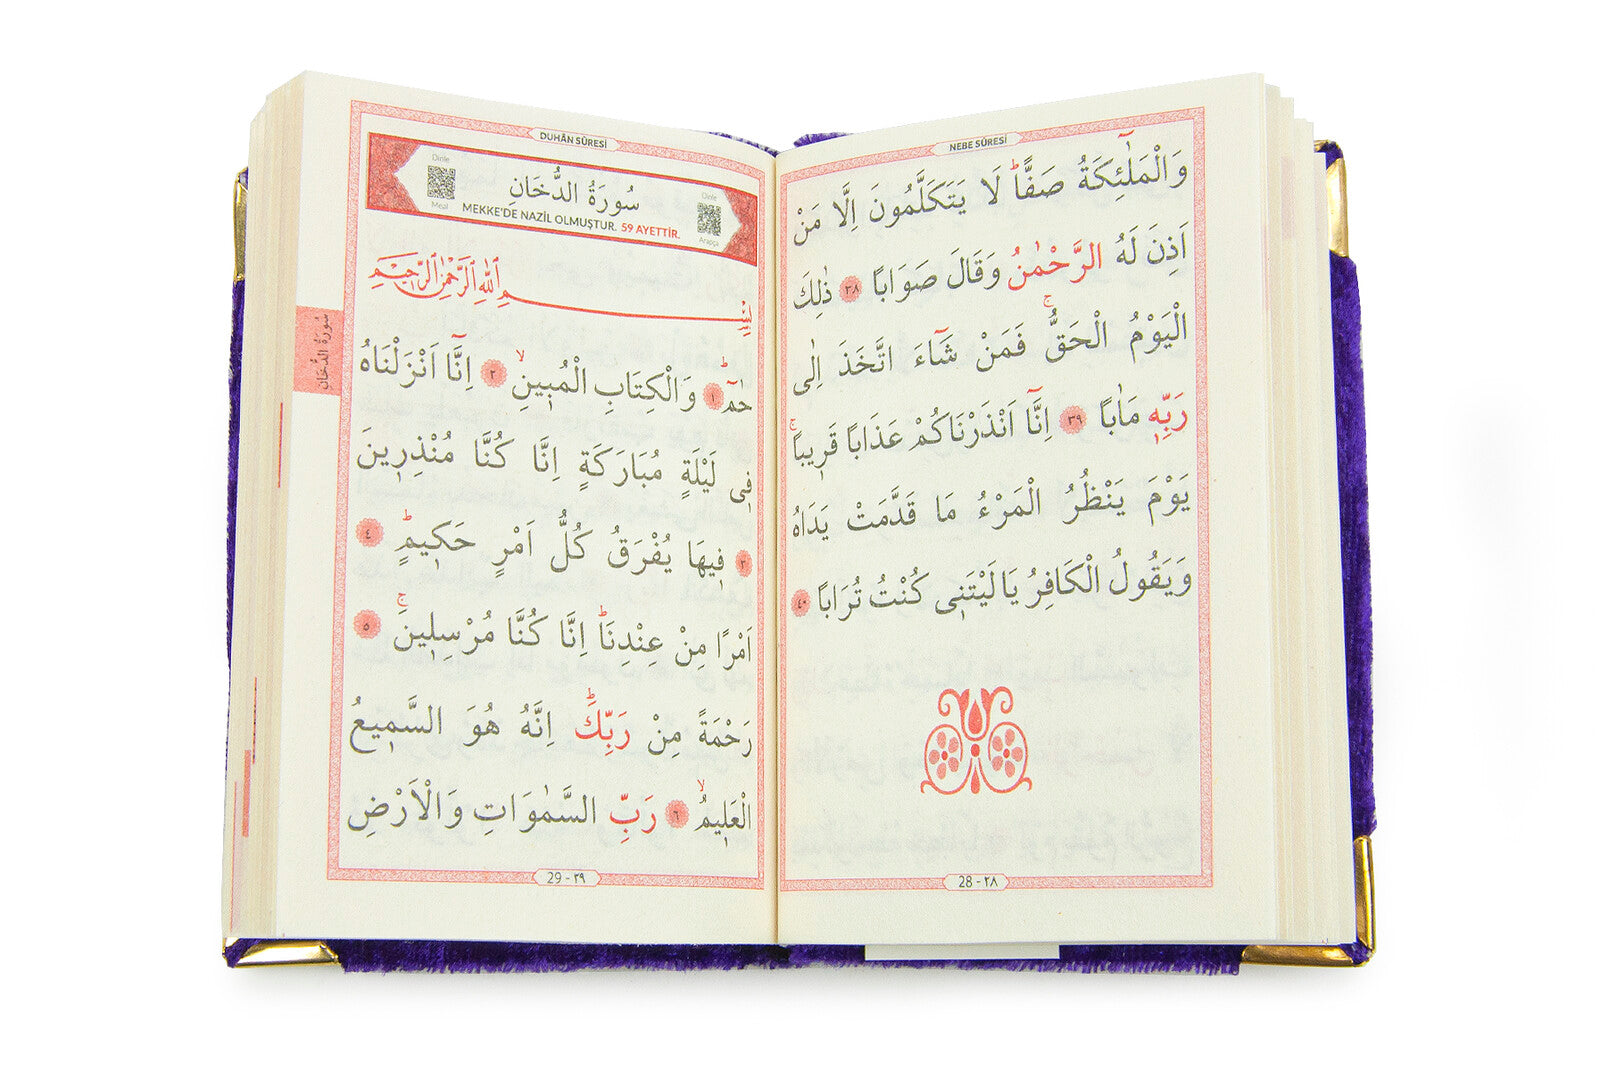 NEBE SÛRESİ
وَالْمَلٰٓئِكَةُ صَفًّاۜ لَا يَتَكَلَّمُونَ اِلَّا مَنْ
اَذِنَ لَهُ الرَّحْمٰنُ وَقَالَ صَوَابًا ٣٨ ذٰلِكَ
الْيَوْمُ الْحَقُّۚ فَمَنْ شَٓاءَ اتَّخَذَ اِلٰى
رَبِّه۪ مَاٰبًا ٣٩ اِنَّٓا اَنْذَرْنَاكُمْ عَذَابًا قَر۪يبًاۚ
يَوْمَ يَنْظُرُ الْمَرْءُ مَا قَدَّمَتْ يَدَاهُ
وَيَقُولُ الْكَافِرُ يَا لَيْتَن۪ى كُنْتُ تُرَابًا ٤٠
28 - ٢٨
DUHÂN SÛRESİ
Dinle
Meal
سُورَةُ الدُّخَانِ
MEKKE'DE NAZİL OLMUŞTUR. 59 AYETTİR.
Dinle
Arapça
بِسْمِ اللّٰهِ الرَّحْمٰنِ الرَّحِيمِ
سُورَةُ الدُّخَان
حٰمٓۜ ١ وَالْكِتَابِ الْمُب۪ينِۙ ٢ اِنَّٓا اَنْزَلْنَاهُ
ف۪ى لَيْلَةٍ مُبَارَكَةٍ اِنَّا كُنَّا مُنْذِر۪ينَ
٣ ف۪يهَا يُفْرَقُ كُلُّ اَمْرٍ حَك۪يمٍۜ ٤
اَمْرًا مِنْ عِنْدِنَاۜ اِنَّا كُنَّا مُرْسِل۪ينَۚ ٥
رَحْمَةً مِنْ رَبِّكَۜ اِنَّهُ هُوَ السَّم۪يعُ
الْعَل۪يمُۙ ٦ رَبِّ السَّمٰوَاتِ وَالْاَرْضِ
29 - ٢٩